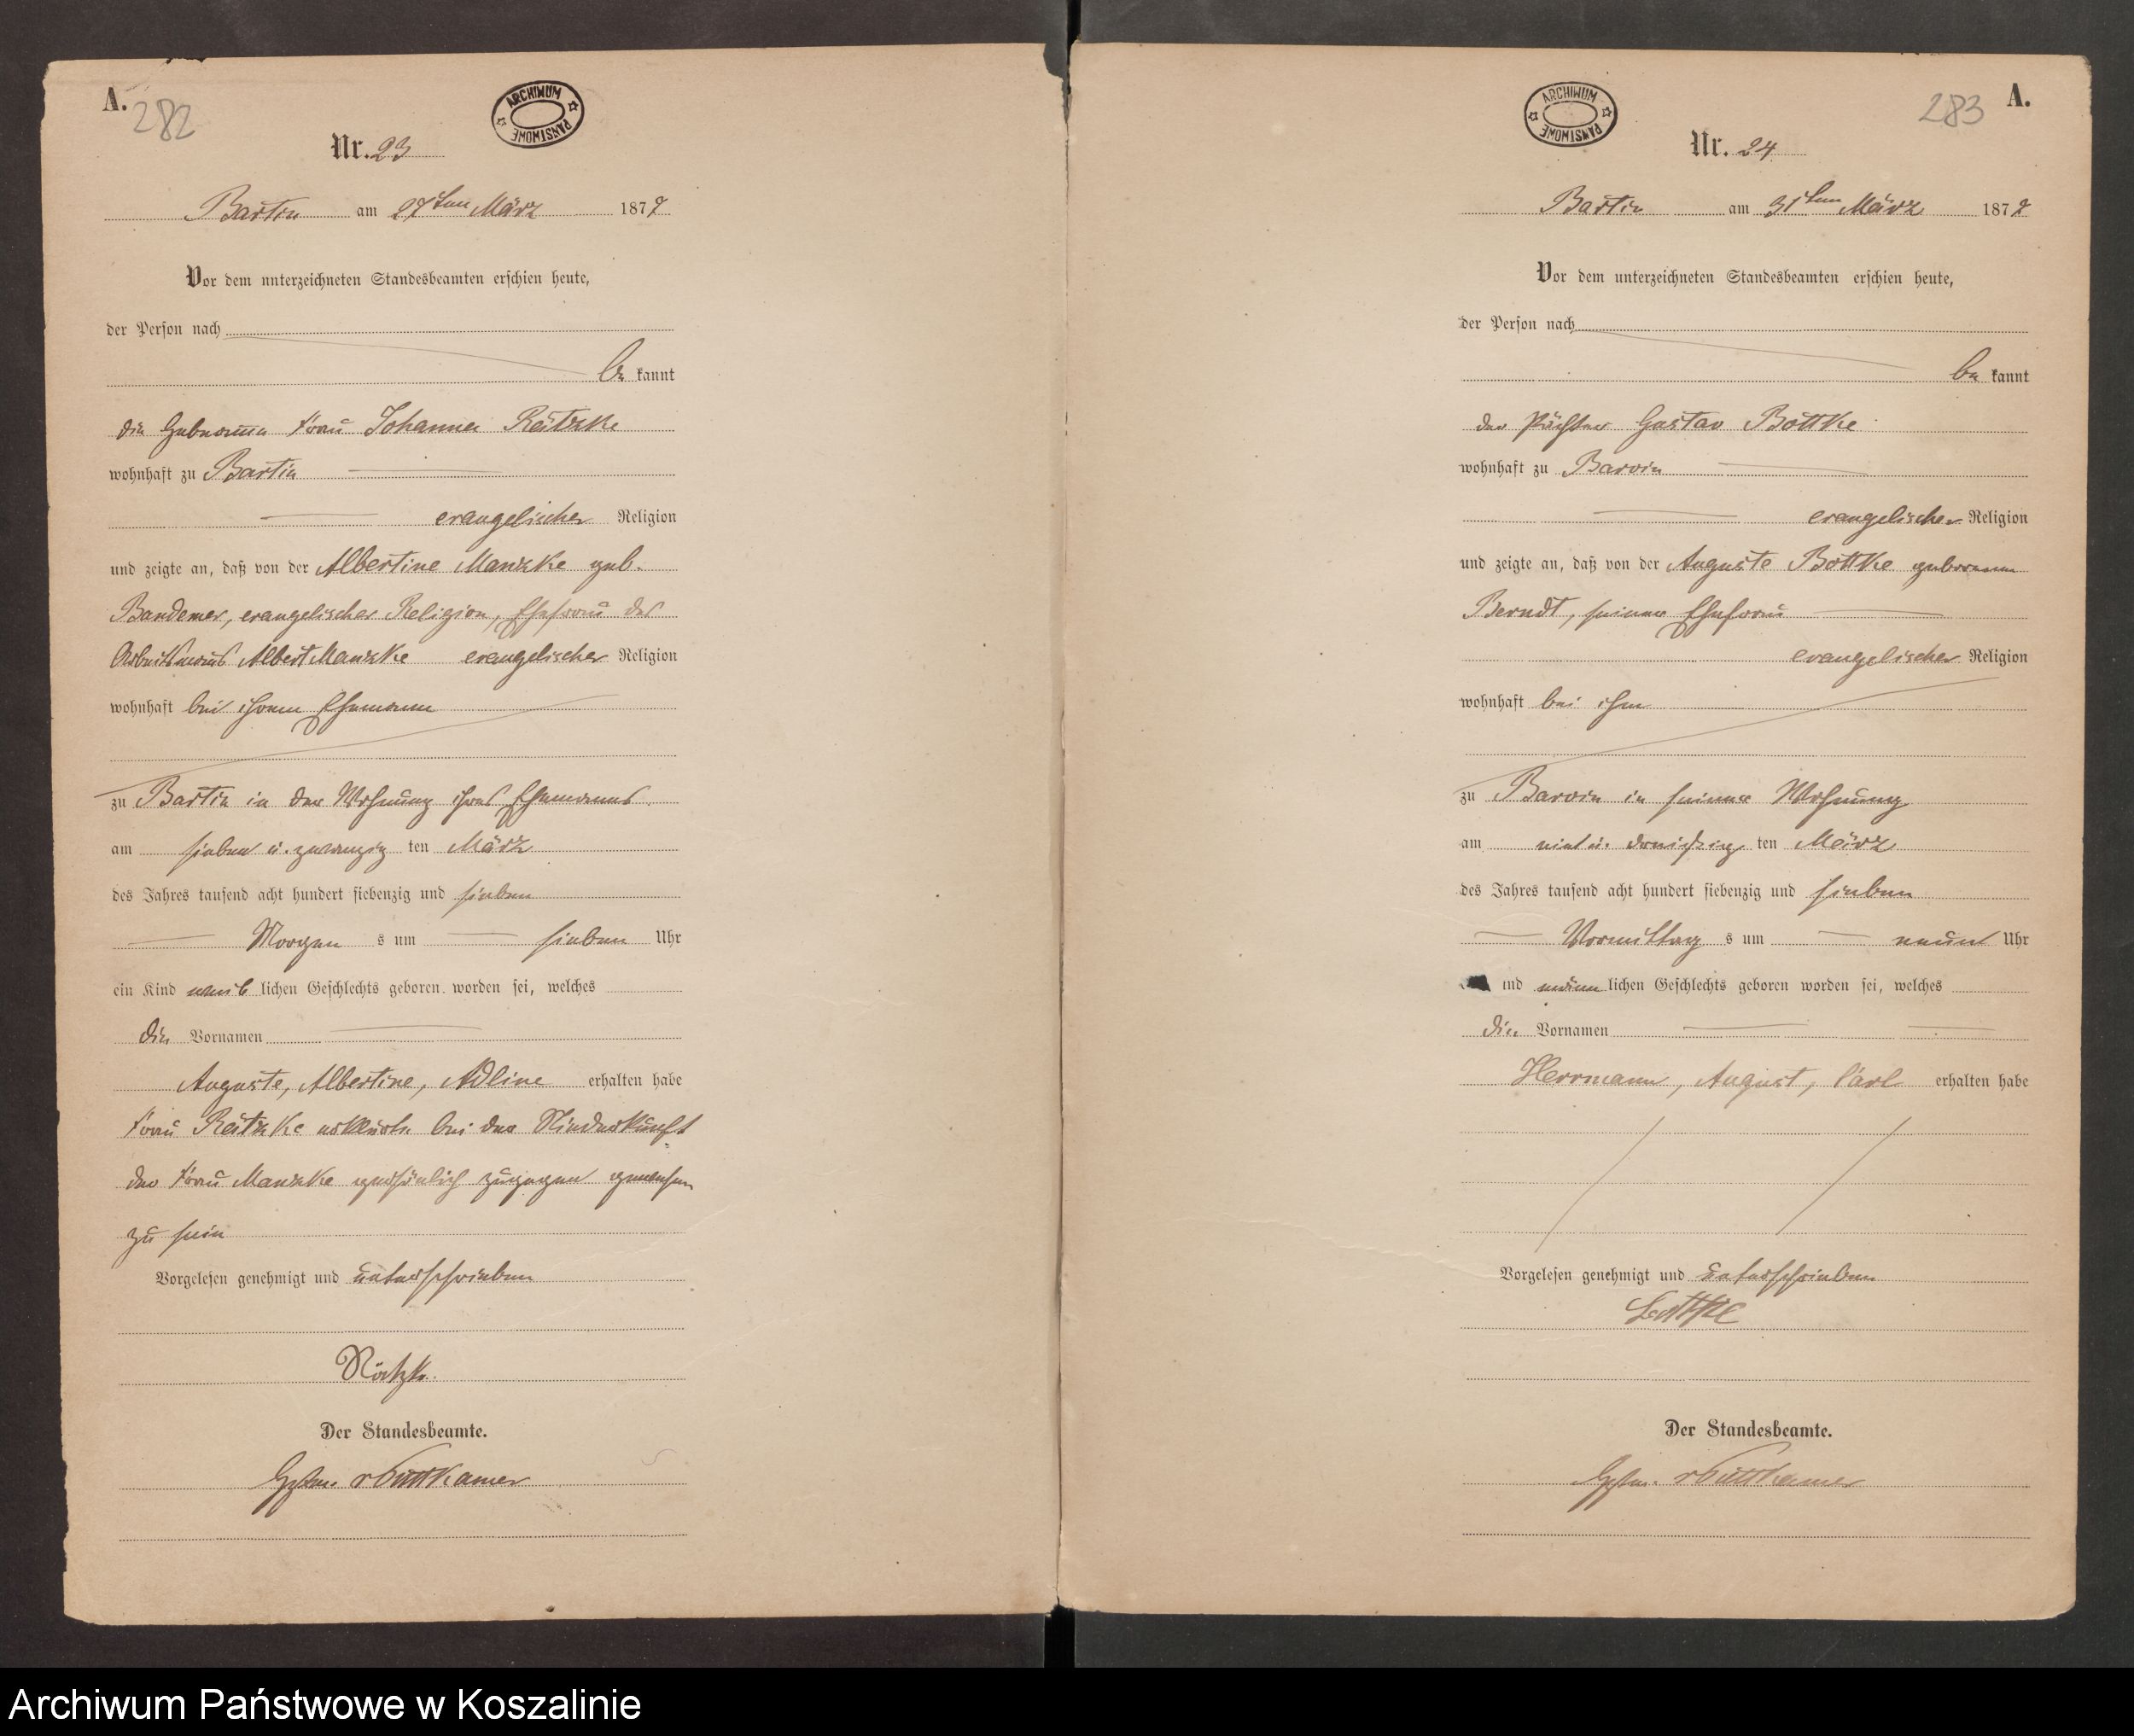 A.
282
ARCHIWUM PAŃSTWOWE
Nr. 23
Bartin am 27ten März 1877
Vor dem unterzeichneten Standesbeamten erschien heute,
der Person nach
be kannt
die Hebamme Frau Johanna Rätzke
wohnhaft zu Bartin
evangelischer Religion
und zeigte an, daß von der Albertine Manzke geb.
Bandemer, evangelischer Religion, Ehefrau des
Arbeitsmanns Albert Manzke evangelischer Religion
wohnhaft bei ihrem Ehemann
zu Bartin in der Wohnung ihres Ehemanns
am sieben u. zwanzig ten März
des Jahres tausend acht hundert siebenzig und sieben
Morgen s um sieben Uhr
ein Kind weib lichen Geschlechts geboren worden sei, welches
die Vornamen
Auguste, Albertine, Adline erhalten habe
Frau Rätzke erklärte bei der Niederkunft
der Frau Manzke persönlich zugegen gewesen
zu sein
Vorgelesen genehmigt und unterschrieben
Rätzke.
Der Standesbeamte.
vPuttkamer
283
A.
ARCHIWUM PAŃSTWOWE
Nr. 24
Bartin am 31ten März 1877
Vor dem unterzeichneten Standesbeamten erschien heute,
der Person nach
be kannt
der Pächter Gustav Bottke
wohnhaft zu Barvin
evangelischer Religion
und zeigte an, daß von der Auguste Bottke geborenen
Berndt, seiner Ehefrau
evangelischer Religion
wohnhaft bei ihm
zu Barvin in seiner Wohnung
am ein u. dreißig ten März
des Jahres tausend acht hundert siebenzig und sieben
Vormittag s um neun Uhr
ind männ lichen Geschlechts geboren worden sei, welches
die Vornamen
Herrmann, August, Carl erhalten habe
Vorgelesen genehmigt und unterschrieben
Bottke
Der Standesbeamte.
vPuttkamer
Archiwum Państwowe w Koszalinie